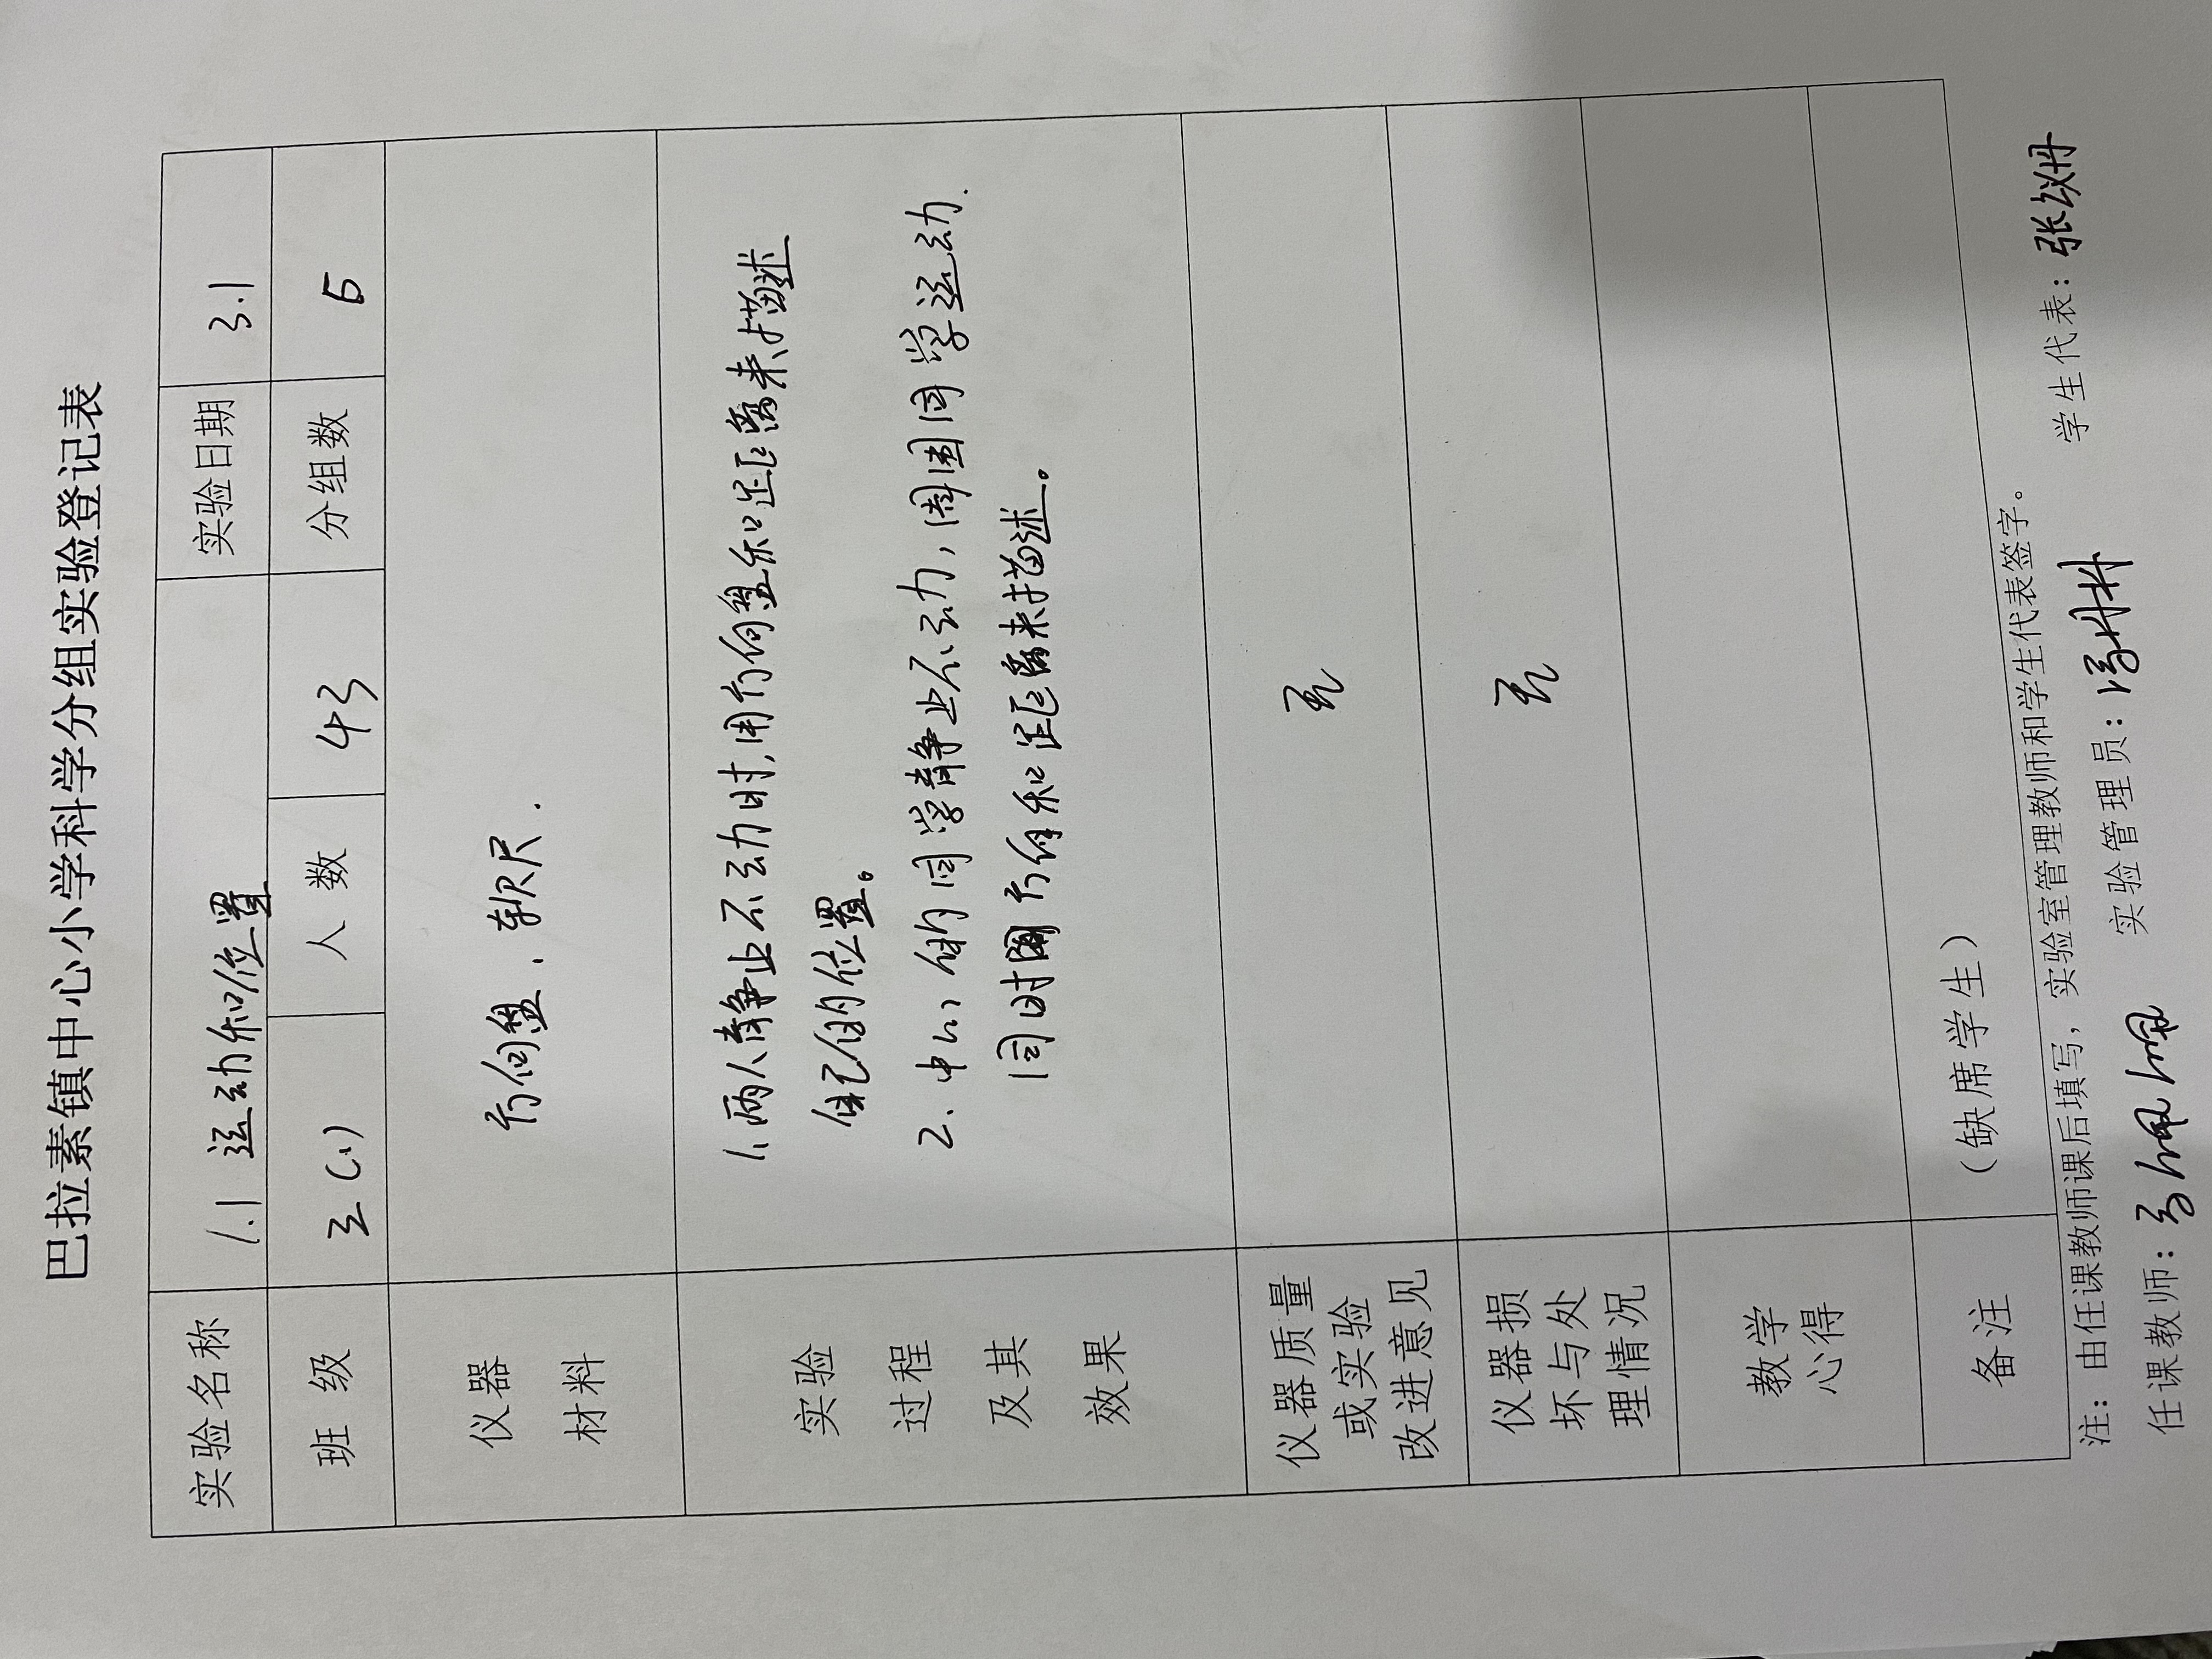 巴拉素镇中心小学科学分组实验登记表
实验名称 1.1 运动和位置 实验日期 3.1
班 级 三(1) 人 数 43 分组数 6
仪器
材料
方向盘、软尺.
实验
过程
及其
效果
1、两人静止不动时,用方向盘和距离来描述
自己的位置。
2、中心的同学静止不动,周围同学运动.
同时用方向和距离来描述。
仪器质量
或实验
改进意见
无
仪器损
坏与处
理情况
无
教学
心得
备注 (缺席学生)
注:由任课教师课后填写,实验室管理教师和学生代表签字。
任课教师: 实验管理员: 学生代表:张